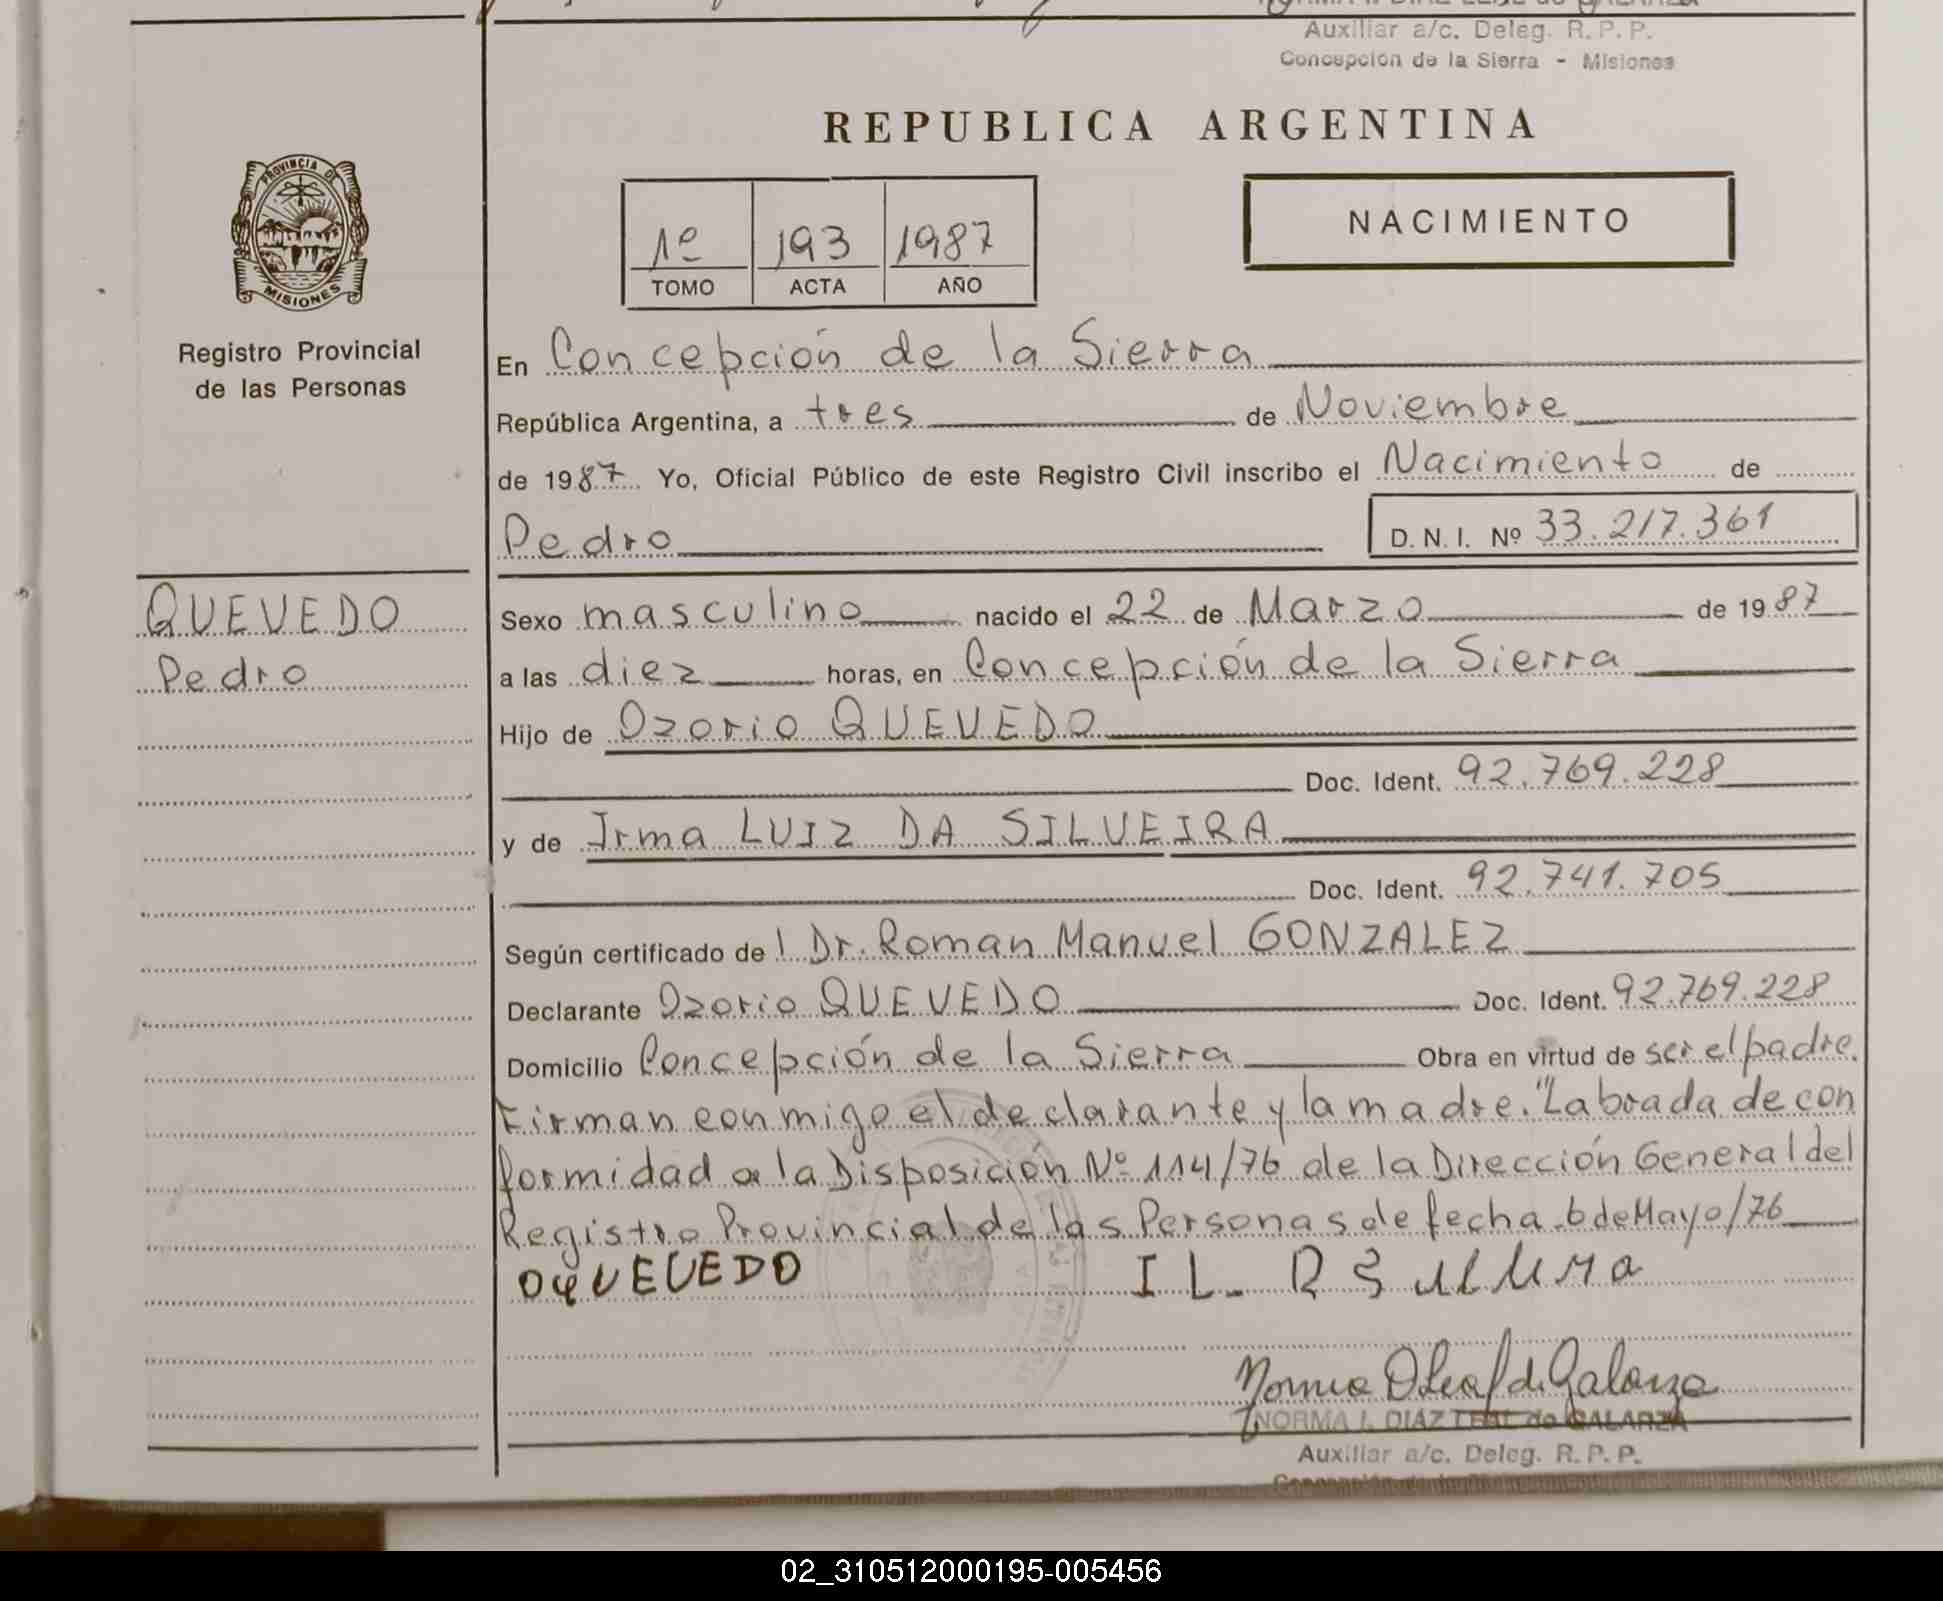 Auxiliar a/c. Deleg. R. P. P.
Concepción de la Sierra - Misiones
REPUBLICA ARGENTINA
PROVINCIA DE
MISIONES
Registro Provincial
de las Personas
1º 193 1987
TOMO ACTA AÑO
NACIMIENTO
En Concepción de la Sierra
República Argentina, a tres de Noviembre
de 1987 Yo, Oficial Público de este Registro Civil inscribo el Nacimiento de
Pedro D. N. I. Nº 33.217.361
QUEVEDO
Pedro
Sexo masculino nacido el 22 de Marzo de 1987
a las diez horas, en Concepción de la Sierra
Hijo de Ozorio QUEVEDO
Doc. Ident. 92.769.228
y de Irma LUIZ DA SILVEIRA
Doc. Ident. 92.741.705
Según certificado de l Dr. Roman Manuel GONZALEZ
Declarante Ozorio QUEVEDO Doc. Ident. 92.769.228
Domicilio Concepción de la Sierra Obra en virtud de ser el padre.
Firman conmigo el declarante y la madre. "Labrada de con
formidad a la Disposición Nº 114/76 de la Dirección General del
Registro Provincial de las Personas de fecha 6 de Mayo/76
OQUEVEDO I L
NORMA I. DIAZ LEAL de GALARZA
Auxiliar a/c. Deleg. R. P. P.
02_310512000195-005456